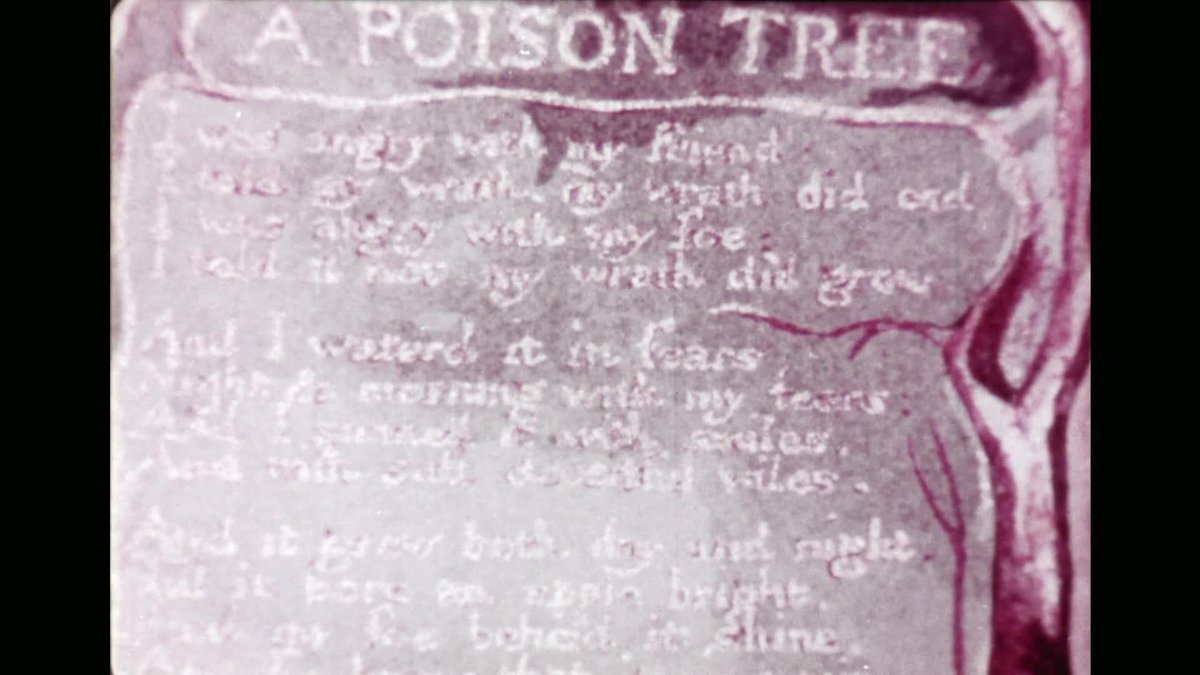 A POISON TREE
I was angry with my friend
I told my wrath, my wrath did end
I was angry with my foe:
I told it not my wrath did grow
And I waterd it in fears
Night & morning with my tears:
And I sunned it with smiles.
And with soft deceitful wiles.
And it grew both day and night.
Till it bore an apple bright.
my foe beheld it shine.
And he that